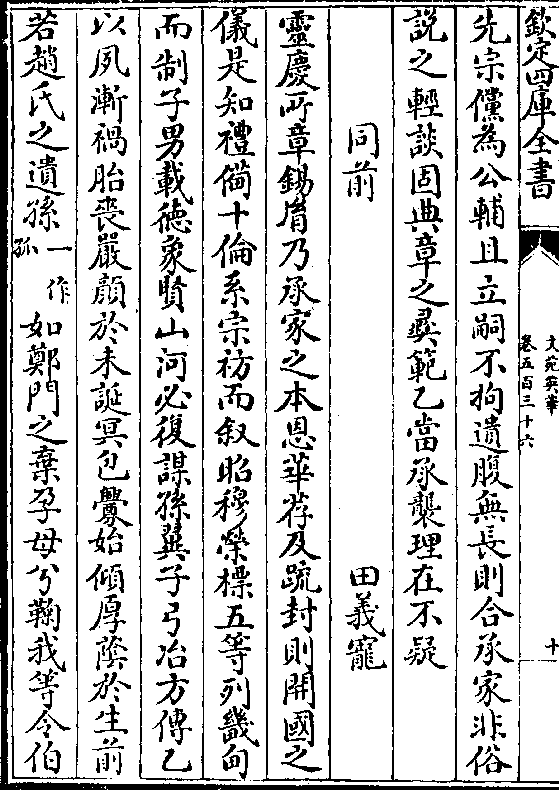 欽定四庫全書
文苑英華
卷五百三十六
十
先宗儻為公輔且立嗣不拘遺腹無長則合承家非俗
説之輕談固典章之彛範乙當承襲理在不疑
同前
田義寵
靈慶所章錫胤乃承家之本恩華荐及疏封則開國之
儀是知禮備十倫系宗祊而叙昭穆榮標五等列畿甸
而制子男載德象賢山河必復謀孫翼子弓冶方傳乙
以夙漸禍胎喪嚴顔於未誕冥包釁始傾厚䕃於生前
若趙氏之遺孫一作孤如鄭門之棄孕母兮鞠我等令伯